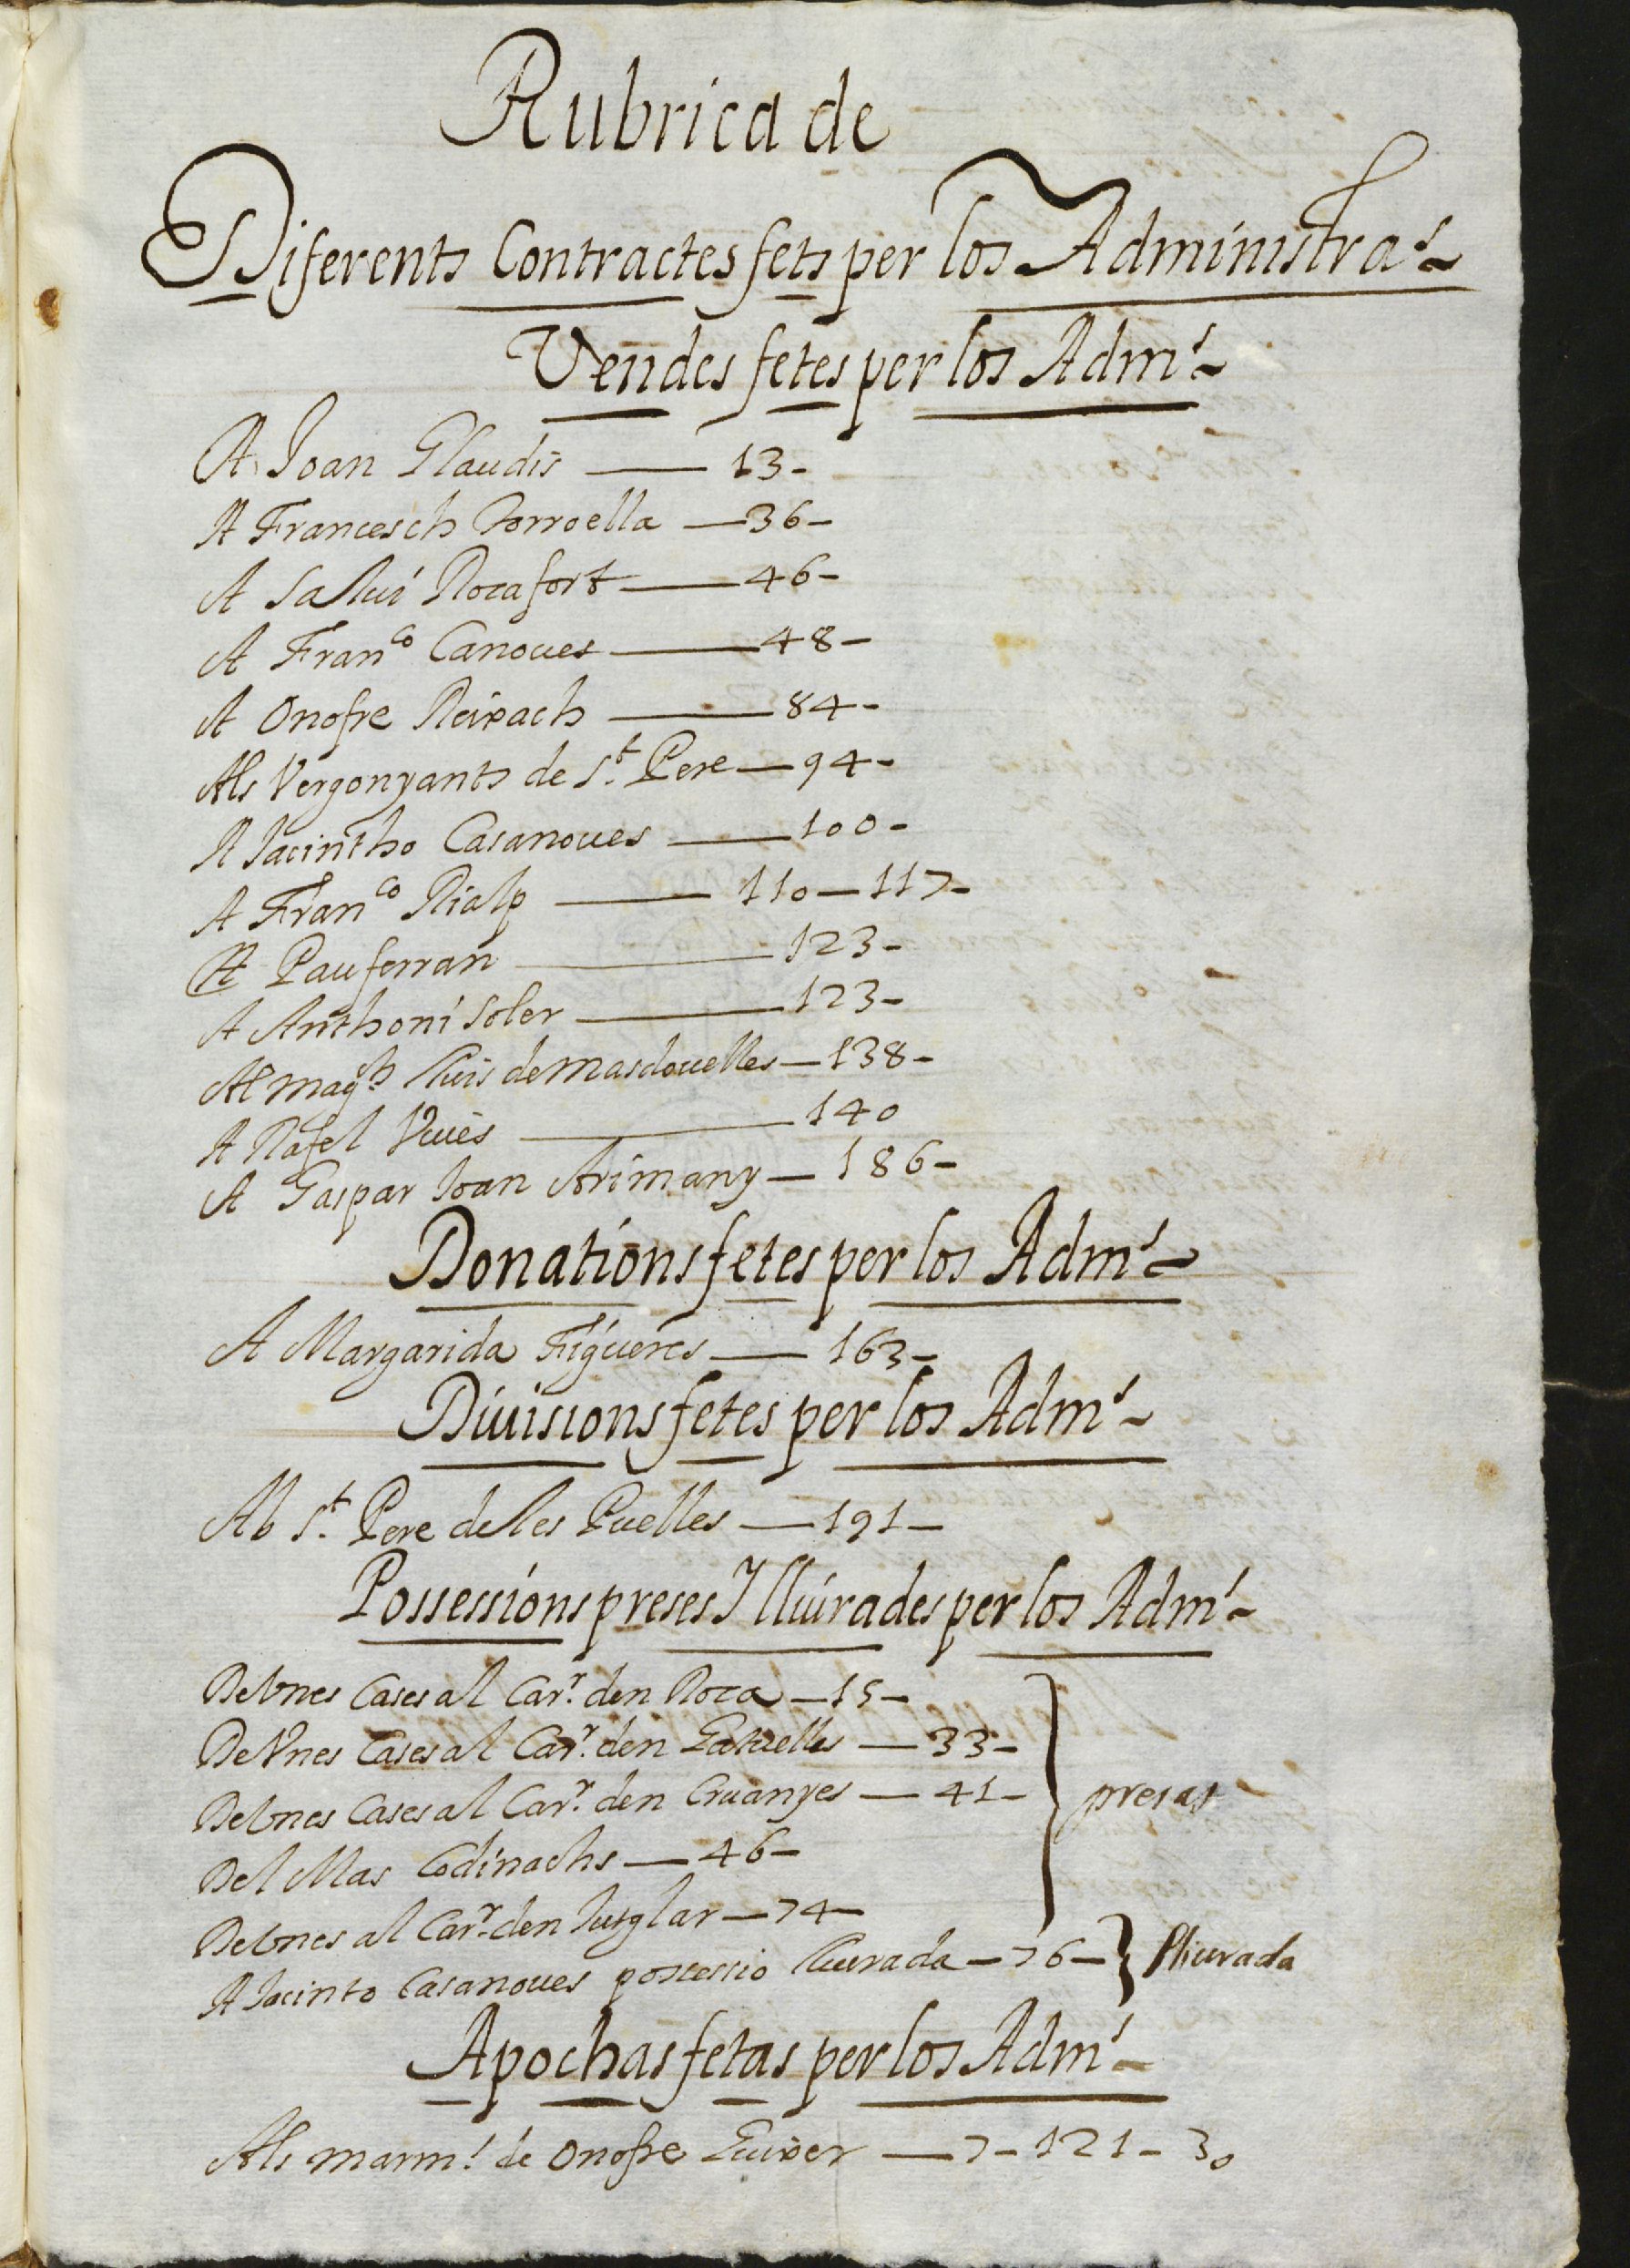 Rubrica de
Diferents Contractes fets per los Administra.s
Vendes fetes per los Adm.s
A Joan Glaudis — 13 -
A Francesch Torroella — 36 -
A Salvi Rocafort — 46 -
A Fran.co Canoves — 48 -
A Onofre Reixach — 84 -
Als Vergonyants de S.t Pere — 94 -
A Jacintho Casanoves — 100 -
A Fran.co Rialp — 110 — 117 -
A Pau ferran — 123 -
A Anthoni Soler — 123 -
Al mag.ch lluis de Masdovelles — 138 -
A Rafel Vives — 140
A Gaspar Joan Arimany — 186 -
Donations fetes per los Adm.s
A Margarida Figueres — 163 -
Divisions fetes per los Adm.s
Ab S.t Pere de les Puelles — 191 -
Possessions preses Y lliurades per los Adm.s
De Unes Cases al Car.r den Roca — 15 -
De Unes Cases al Car.r den — 33 -
De Unes Cases al Car.r den Cruanyes — 41 -
presas
Del Mas Codinachs — 46 -
De Unes al Car.r den Jutglar — 74 -
A Jacinto Casanoves possessio lliurada — 76 - lliurada
Apochas fetas per los Adm.s
Als marm.s de Onofre Guixer — 7 - 121 - 30